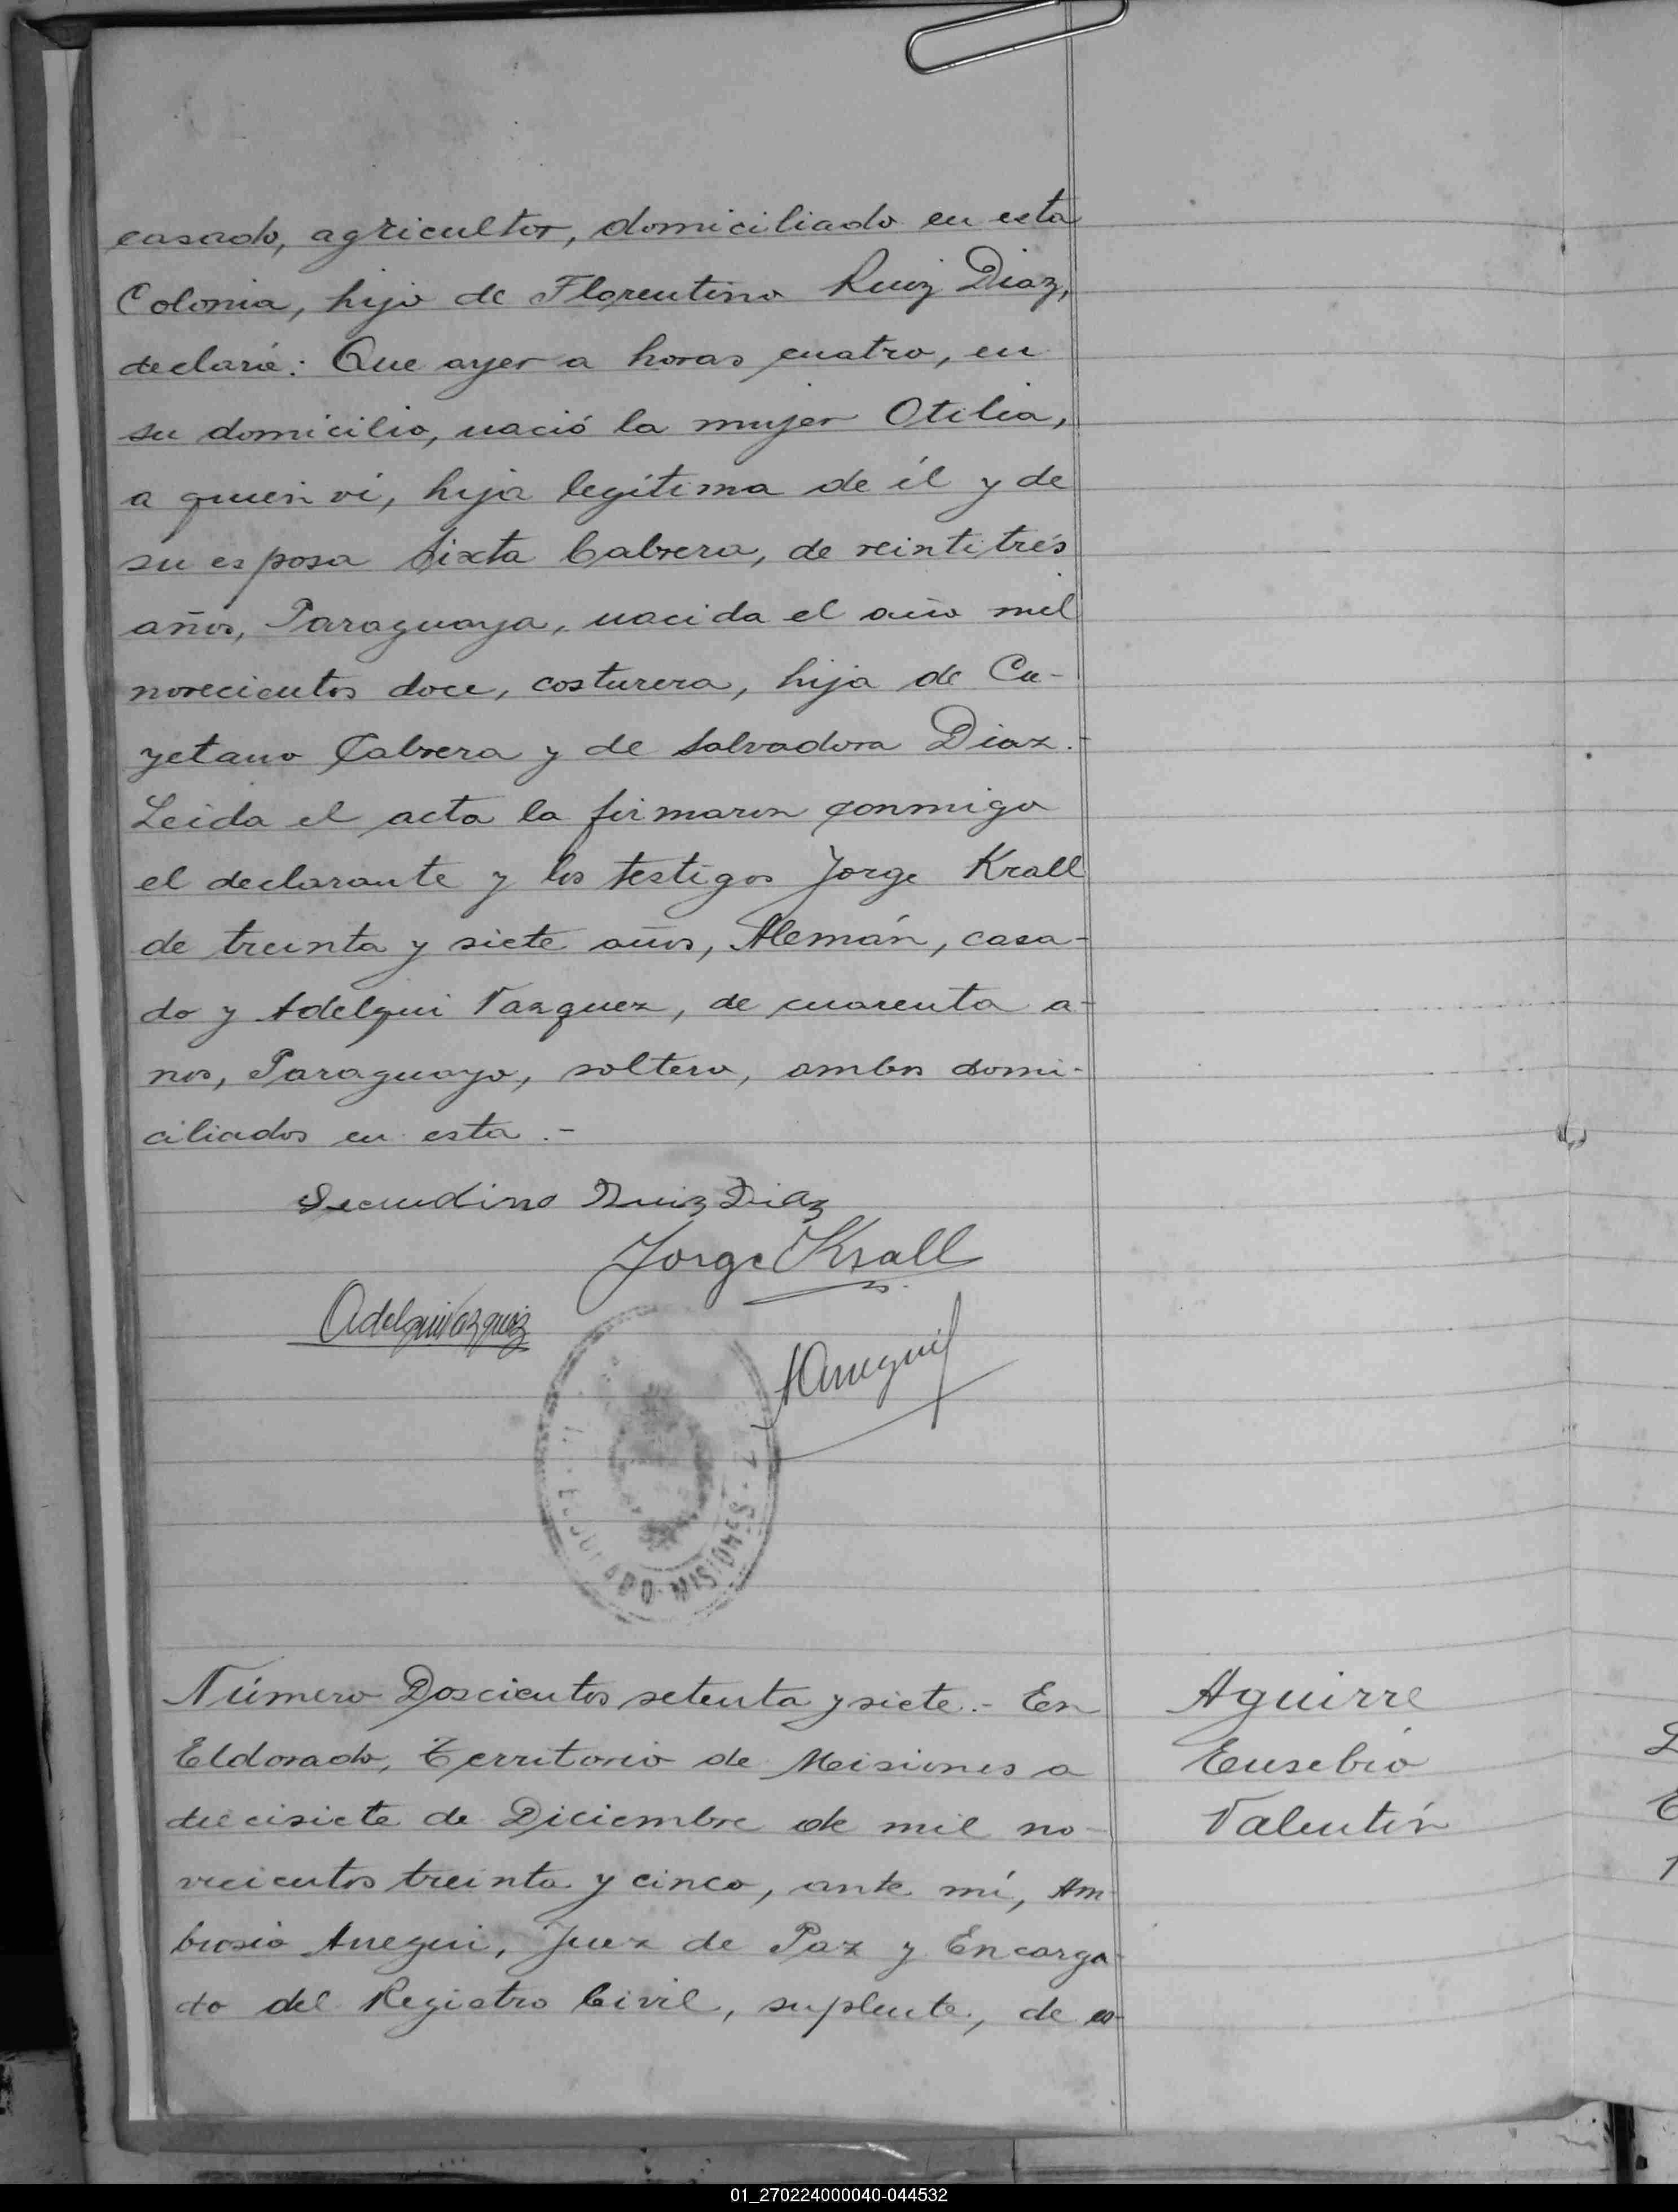 casado, agricultor, domiciliado en esta
Colonia, hijo de Florentino Ruiz Diaz,
declaró: Que ayer a horas cuatro, en
su domicilio, nació la mujer Otilia,
a quien ví, hija legítima de él y de
su esposa Sixta Cabrera, de veintitrés
años, Paraguaya, nacida el año mil
novecientos doce, costurera, hija de Ca-
yetano Cabrera y de Salvadora Diaz.-
Leida el acta la firmaron conmigo
el declarante y los testigos Jorge Krall
de treinta y siete años, Alemán, casa-
do y Adelqui Vazquez, de cuarenta a-
nos, Paraguayo, soltero, ambos domi-
ciliados en esta.-
Secundino Ruiz Diaz
Jorge Krall
Adelqui Vazquez
ELDORADO - MISIONES
Número Doscientos setenta y siete.- En
Eldorado, Territorio de Misiones a
diecisiete de Diciembre de mil no-
vecientos treinta y cinco, ante mí, Am-
brosio Aneguí, Juez de Paz y Encarga-
do del Registro Civil, suplente, de es-
Aguirre
Eusebio
Valentín
01_270224000040-044532